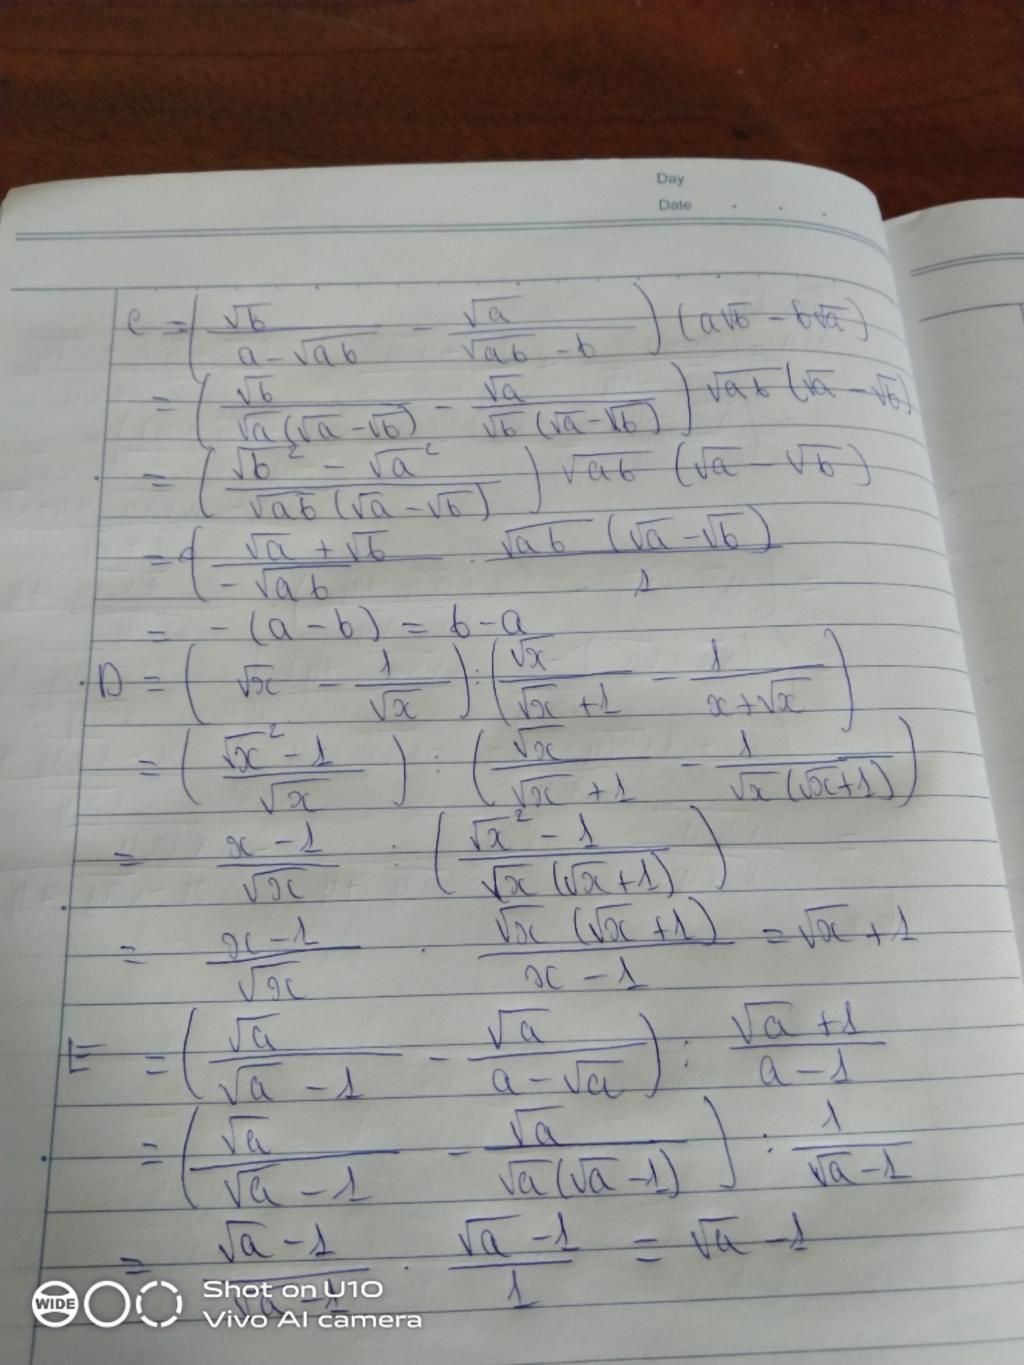 Day
Date . . .
C = (√b / (a - √ab) - √a / (√ab - b)) (a√b - b√a)
= (√b / (√a(√a - √b)) - √a / (√b(√a - √b))) √ab (√a - √b)
= ((√b² - √a²) / (√ab(√a - √b))) √ab (√a - √b)
= ((√a + √b) / (-√ab) . (√ab (√a - √b)) / 1
= -(a - b) = b - a
D = (√x - 1/√x) : (√x / (√x + 1) - 1 / (x + √x))
= ((√x² - 1) / √x) : (√x / (√x + 1) - 1 / (√x(√x + 1)))
= (x - 1) / √x : ((√x² - 1) / (√x(√x + 1)))
= (x - 1) / √x . (√x(√x + 1)) / (x - 1) = √x + 1
E = (√a / (√a - 1) - √a / (a - √a)) : (√a + 1) / (a - 1)
= (√a / (√a - 1) - √a / (√a(√a - 1))) : 1 / (√a - 1)
= (√a - 1) / (√a - 1) . (√a - 1) / 1 = √a - 1
WIDE
Shot on U10
Vivo AI camera